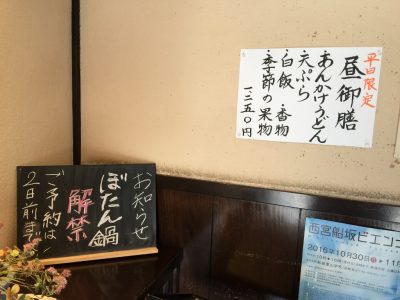 平日限定
昼御膳
あんかけうどん
天ぷら
・白飯・香物
・季節の果物
一三五〇円
お知らせ
ぼたん鍋
解禁
ご予約は
2日前まで
西宮船坂ビエンナ
2016年10月30日